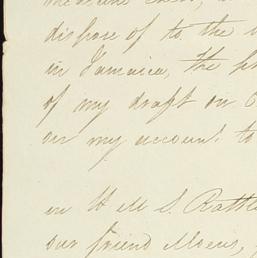 dispose of to the
in Jamaica, the
of my draft on
on my account to
in H M S. Rattle
our friend